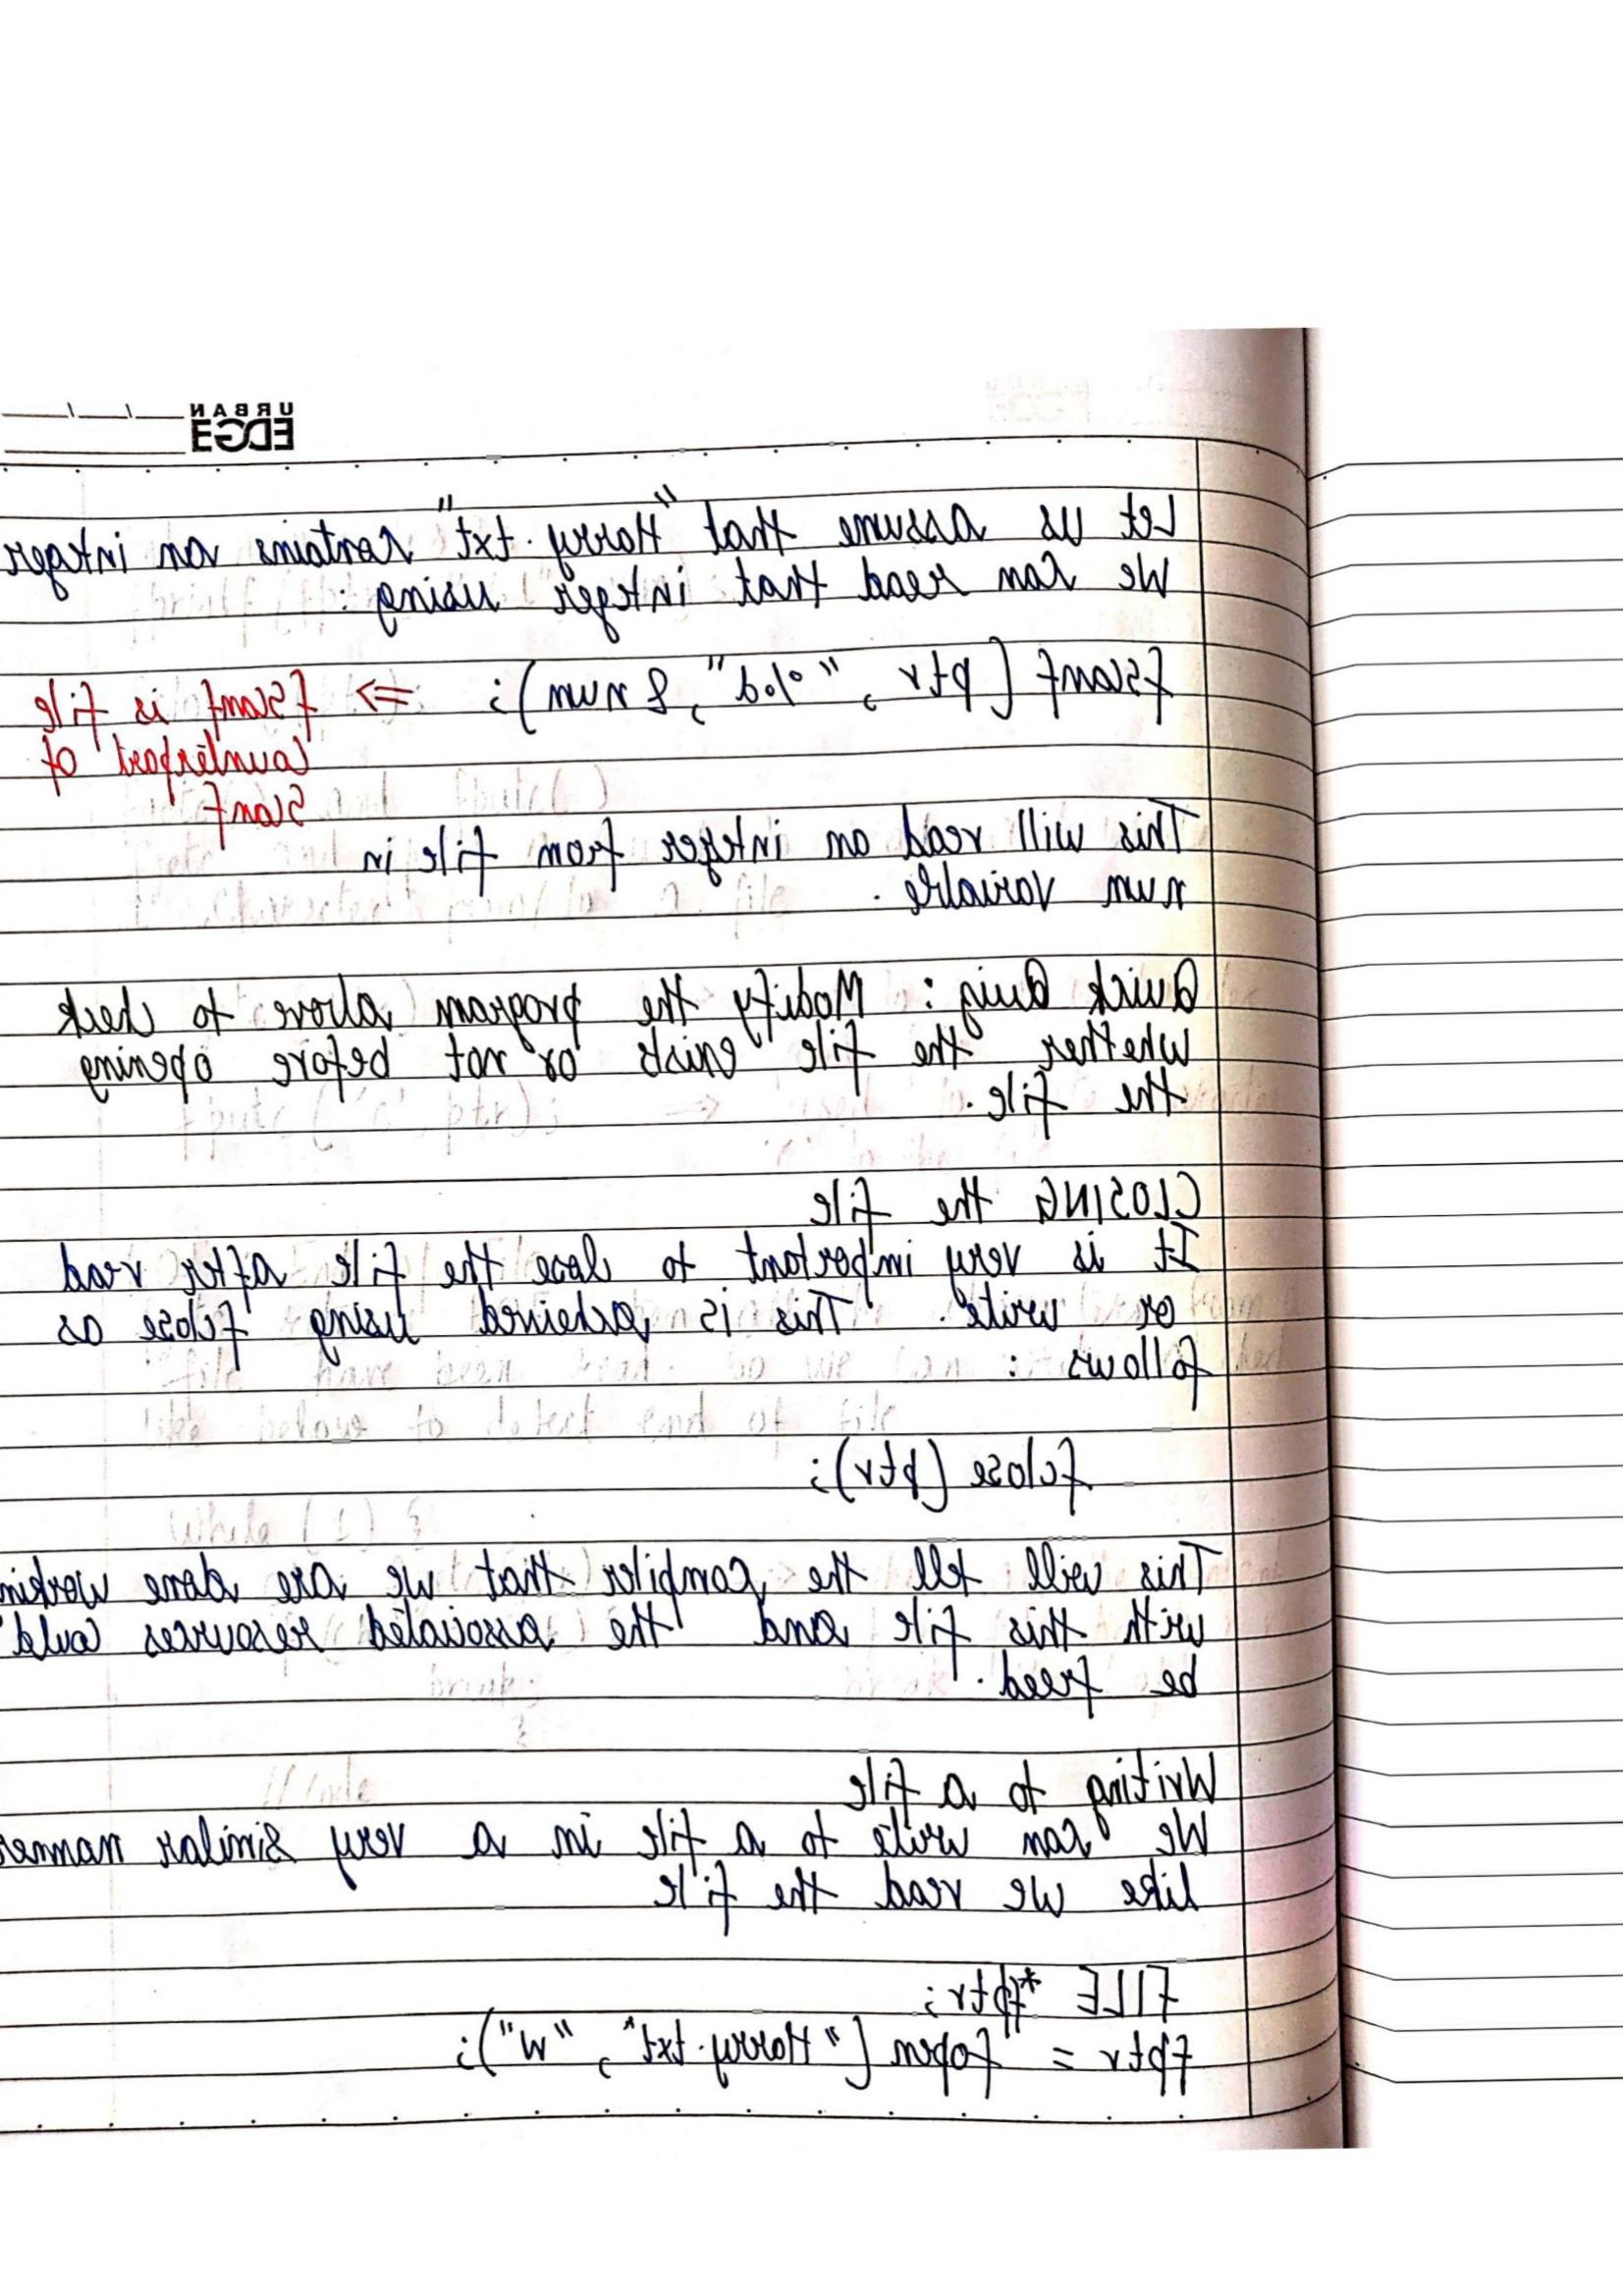 URBAN
EDGE
Let us assume that "Harry.txt" contains an integer
We can read that integer using :
fscanf (ptr, "%d", &num); => fscanf is file
counterpart of
scanf
This will read an integer from file in
num variable.
Quick Quiz: Modify the program above to check
whether the file exists or not before opening
the file.
CLOSING the file
It is very important to close the file after read
or write. This is acheived using fclose as
follows :
fclose (ptr);
This will tell the compiler that we are done workin
with this file and the associated resources could
be freed.
Writing to a file
We can write to a file in a very similar manner
like we read the file
FILE *fptr;
fptr = fopen ("Harry.txt", "w");